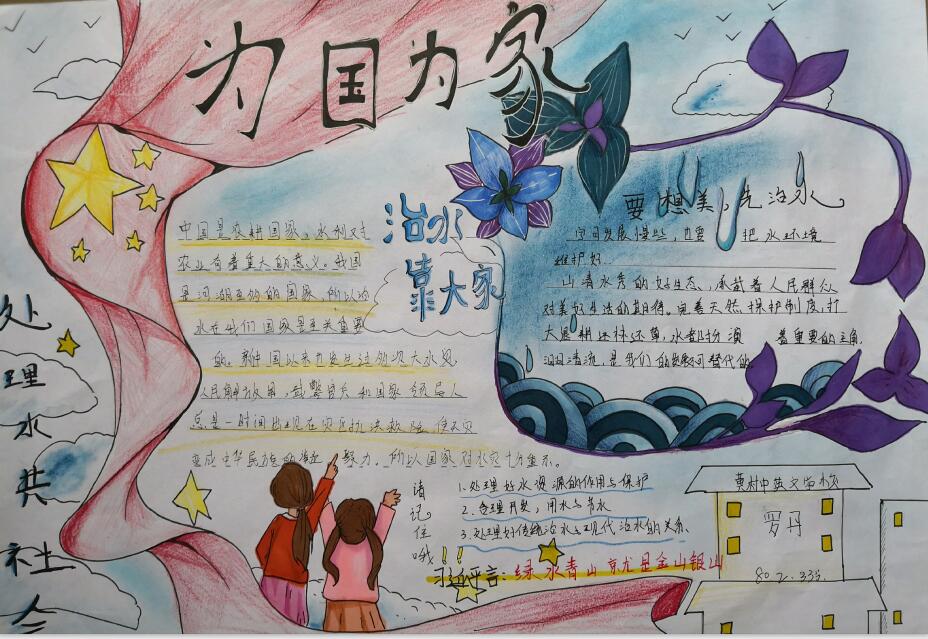 为国为家
治水
靠大家
中国是农耕国家。水利对
农业有着重大的意义。我国
是河湖至多的国家，所以治
水在我们国家是至关重要
的。新中国以来也发生过
次大水灾，
人民解放军，武警官兵和国家领导人
总是一时间出现在灾区抗洪救险，使天灾
变成中华民族的
聚力。所以国家对水灾十分重
要想美，先治水
宁可发展慢些，也要 把水环境
维护好.
山清水秀的好生态，承载着人民群众
对美好生活的期待。完善天然保护制度，扩
大退耕还林还草，水都扮演 着重要的主角.
汩汩清流，是我们的 可替代的.
处理水共社会
请记住哦!!
1.处理好水资源的作用与保护
2.合理开发，用水与节水
3.处理好传统治水与现代治水的关系.
言：绿水青山就是金山银山
黄村中英文学校
罗丹
802.33号